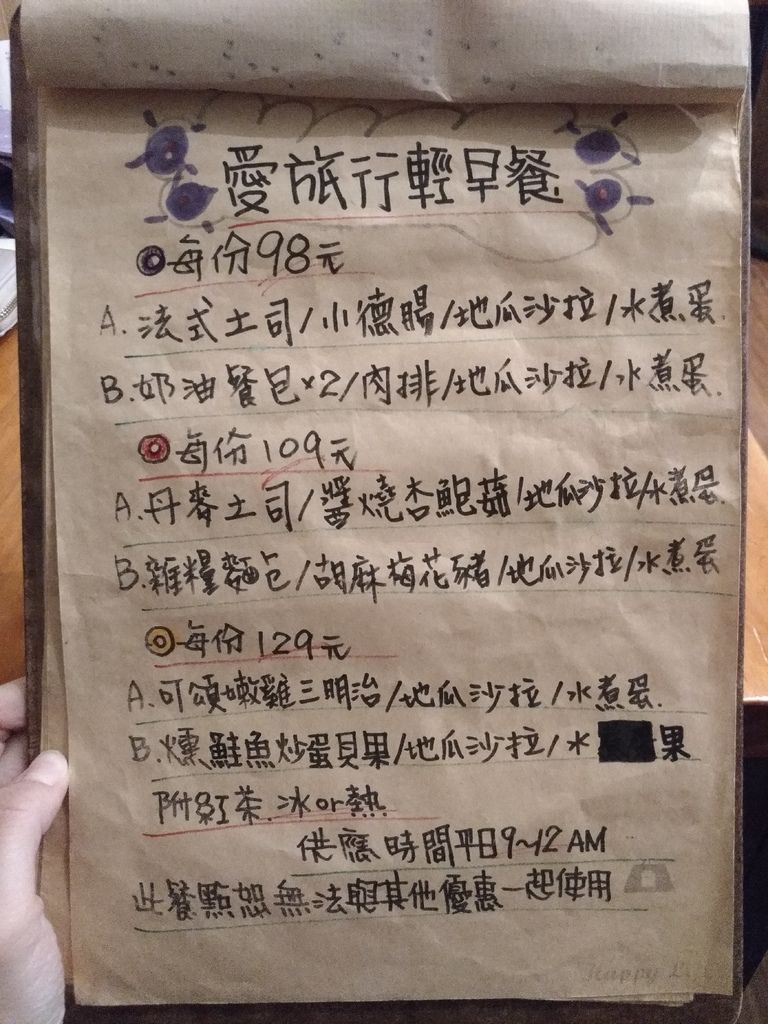 愛旅行輕早餐
每份98元
A.法式土司/小德腸/地瓜沙拉/水煮蛋.
B.奶油餐包×2/肉排/地瓜沙拉/水煮蛋.
每份109元
A.丹麥土司/醬燒杏鮑菇/地瓜沙拉/水煮蛋.
B.雜糧麵包/胡麻梅花豬/地瓜沙拉/水煮蛋
每份129元
A.可頌嫩雞三明治/地瓜沙拉/水煮蛋.
B.燻鮭魚炒蛋貝果/地瓜沙拉/水 果
附紅茶.冰or熱
供應時間平日9~12AM
此餐點恕無法與其他優惠一起使用